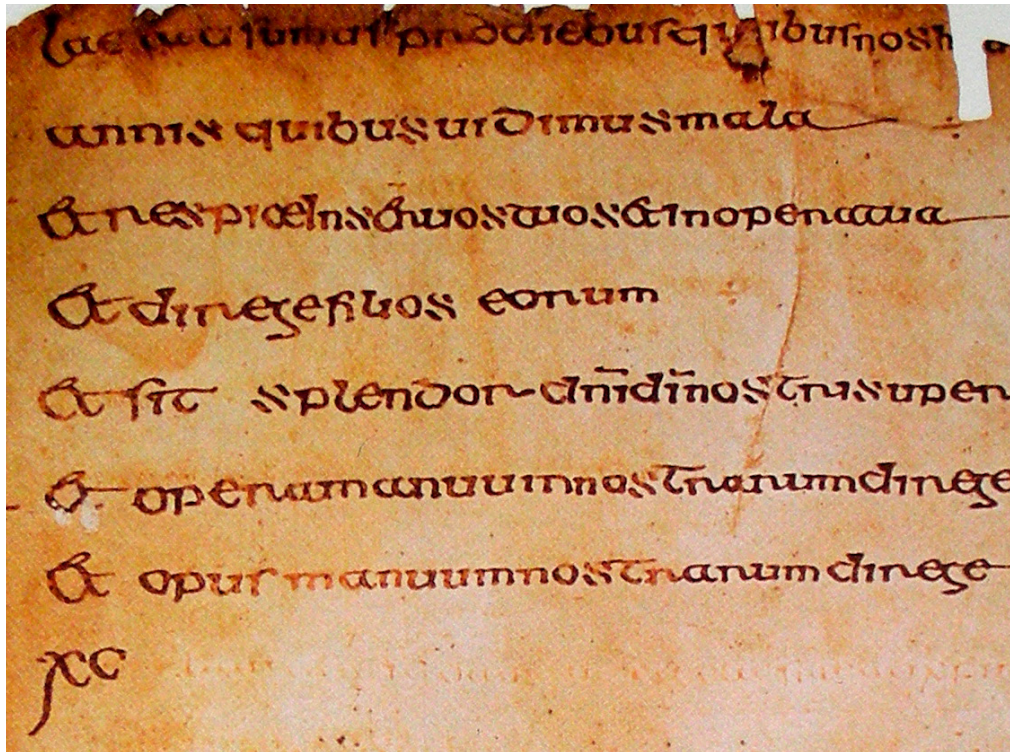 Laetati sumus pro diebus quibus nos h
annis quibus uidimus mala
Et respicae in seruos tuos et in opera tua
Et direge filios eorum
Et sit splendor dn̄i dī nostri super
Et opera manuum nostrarum direge
Et opus manuum nostrarum direge
XC